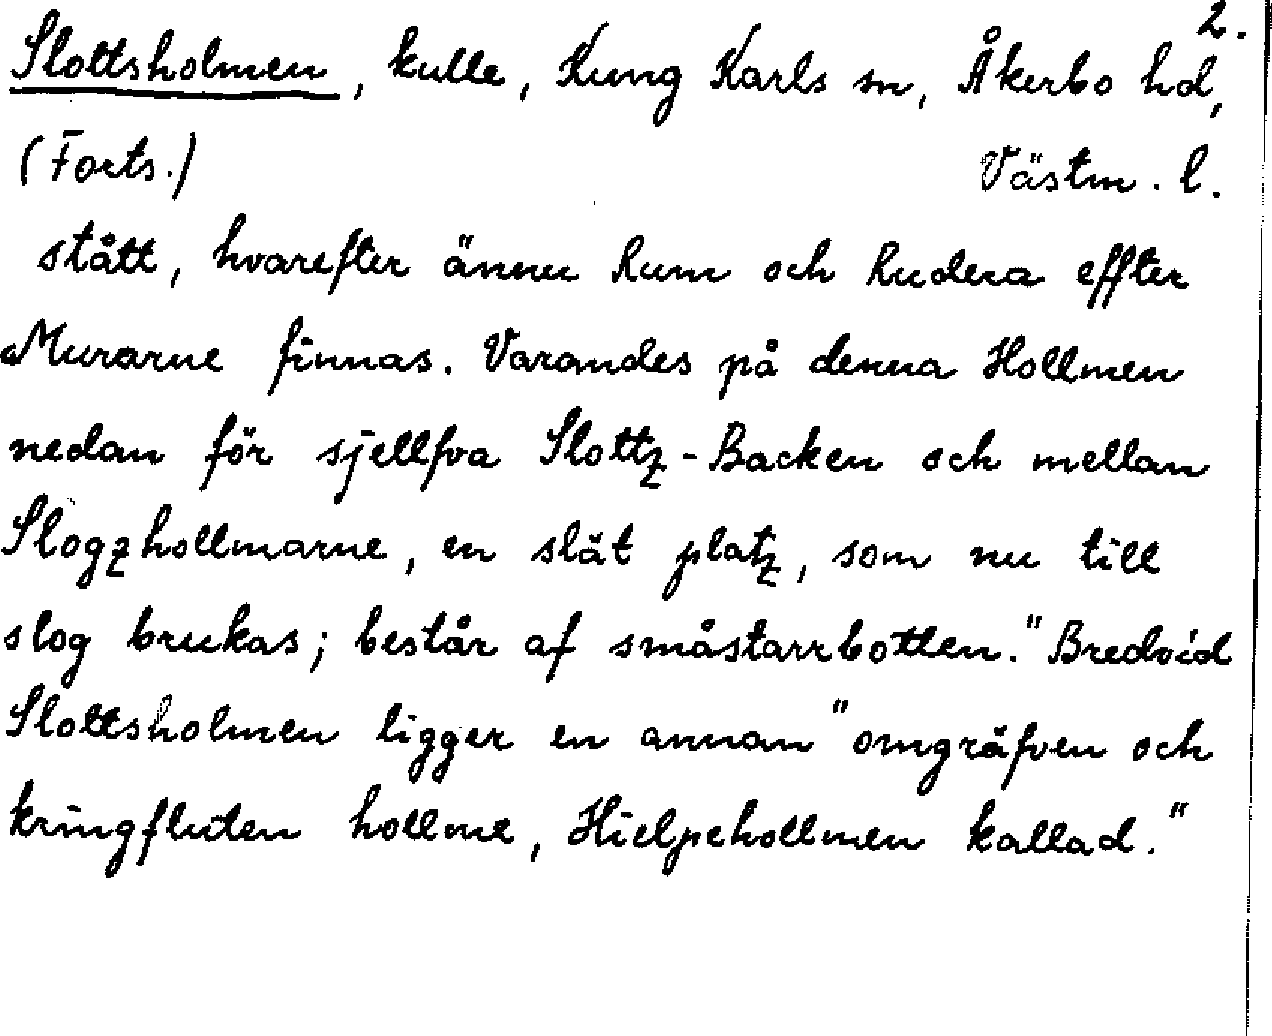 2.
Slottsholmen, kulle, Kung Karls sn, Åkerbo hd,
(Forts.) Västm. l.
stått, hvarefter ännu Rum och Rudera effter
Murarne finnas. Varandes på denna Hollmen
nedan för sjellfva Slottz-Backen och mellan
Slogzhollmarne, en slät platz, som nu till
slog brukas; består af småstarrbotten." Bredvid
Slottsholmen ligger en annan "omgräfven och
kringfluten hollme, Hielpehollmen kallad."